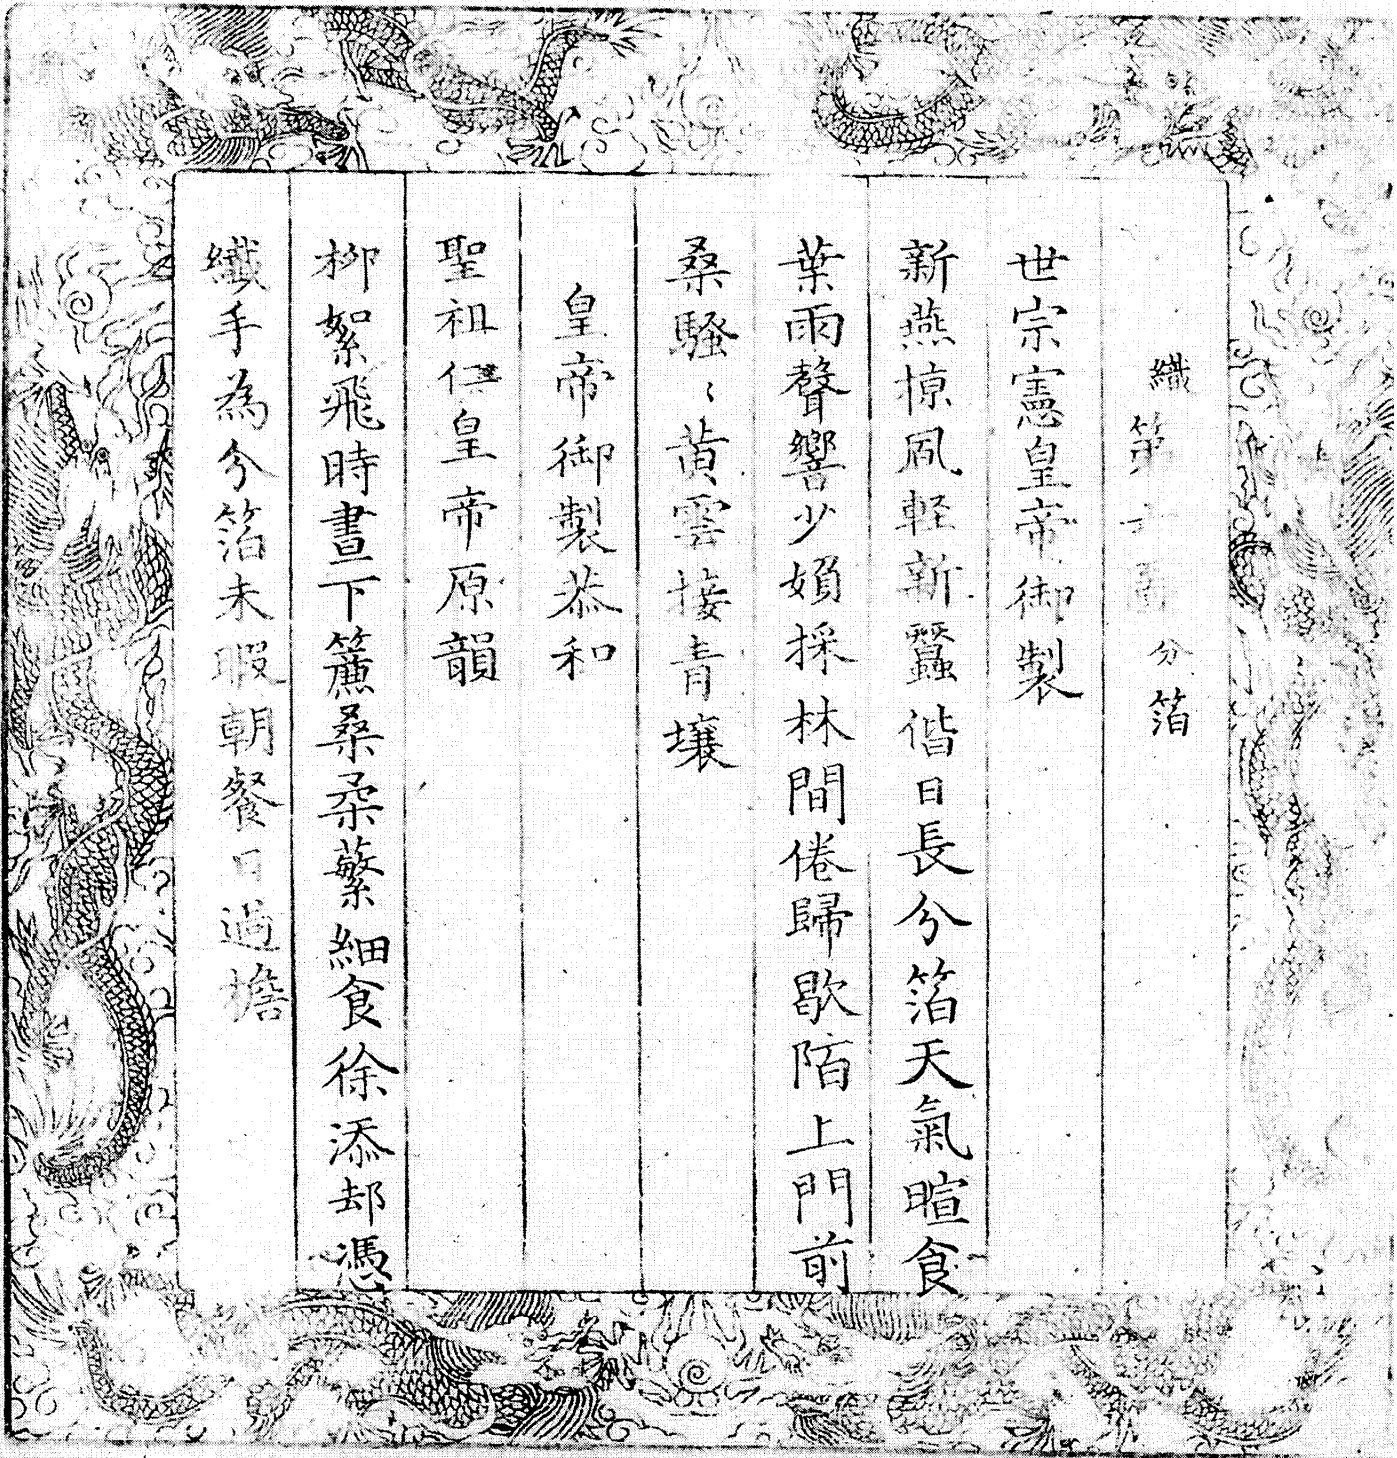 織第 分箔
世宗憲皇帝御製
新燕掠風軽新蠶偕日長分箔天氣暄食
葉雨聲響少嬪採林間倦歸歇陌上門前
桑騷〻黃雲接青壤
皇帝御製恭和
聖祖仁皇帝原韻
柳絮飛時晝下簾桑柔蘩細食徐添却憑
纖手為分箔未暇朝餐日過檐